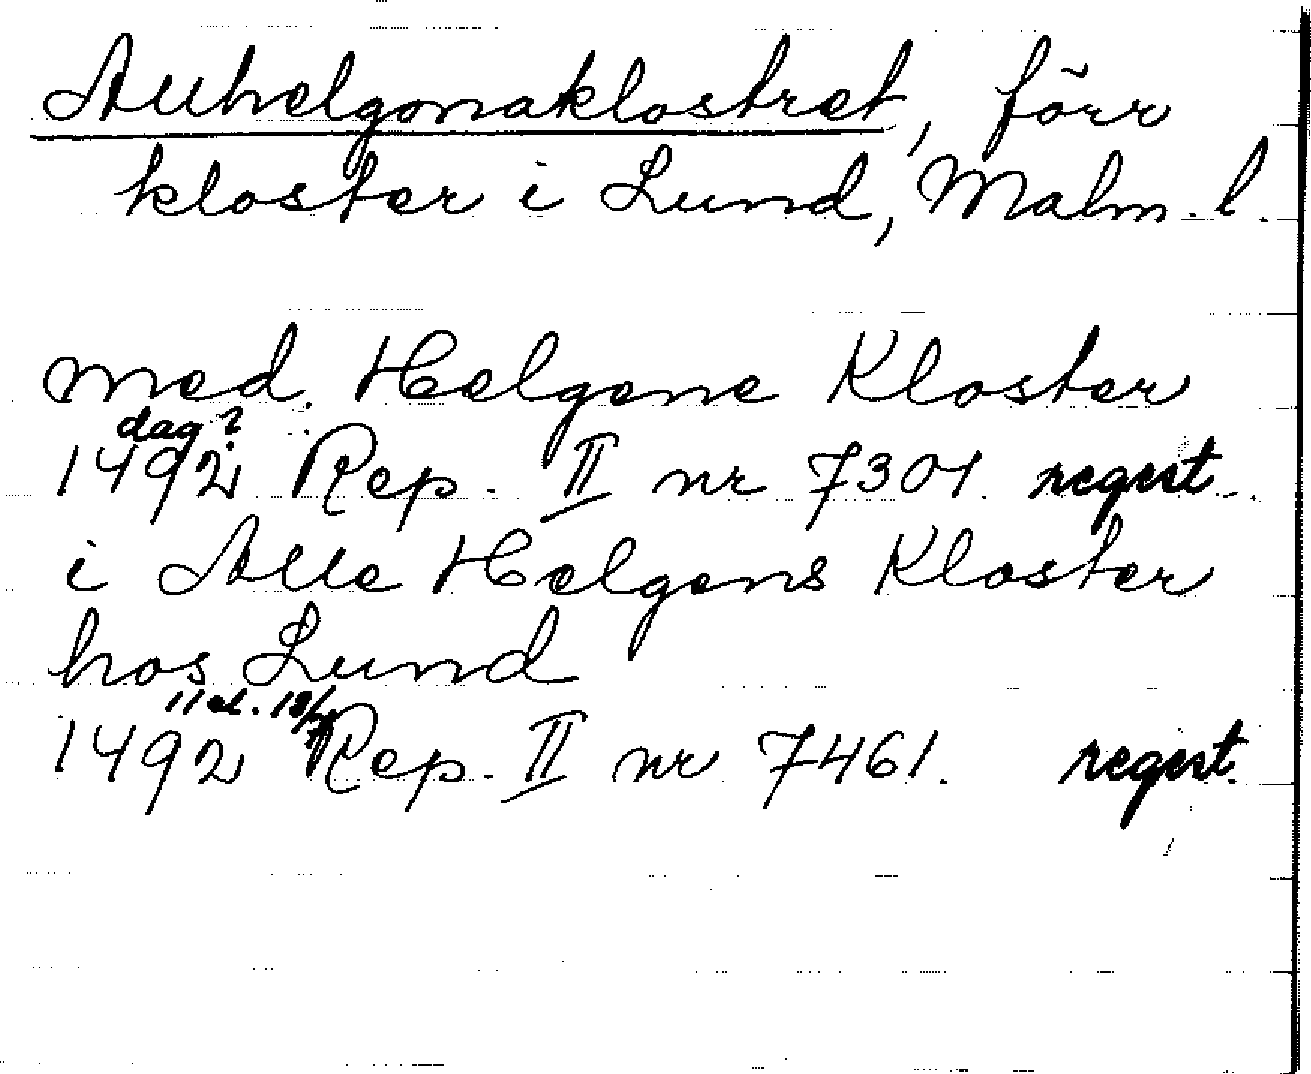 Allhelgonaklostret, förr
kloster i Lund, Malm. l.
med. Helgene Kloster
dag?
1492 Rep. II nr 7301. regest.
i Alle Helgens Kloster
hos Lund
11 el. 18/7
1492 Rep. II nr 7461. regest.